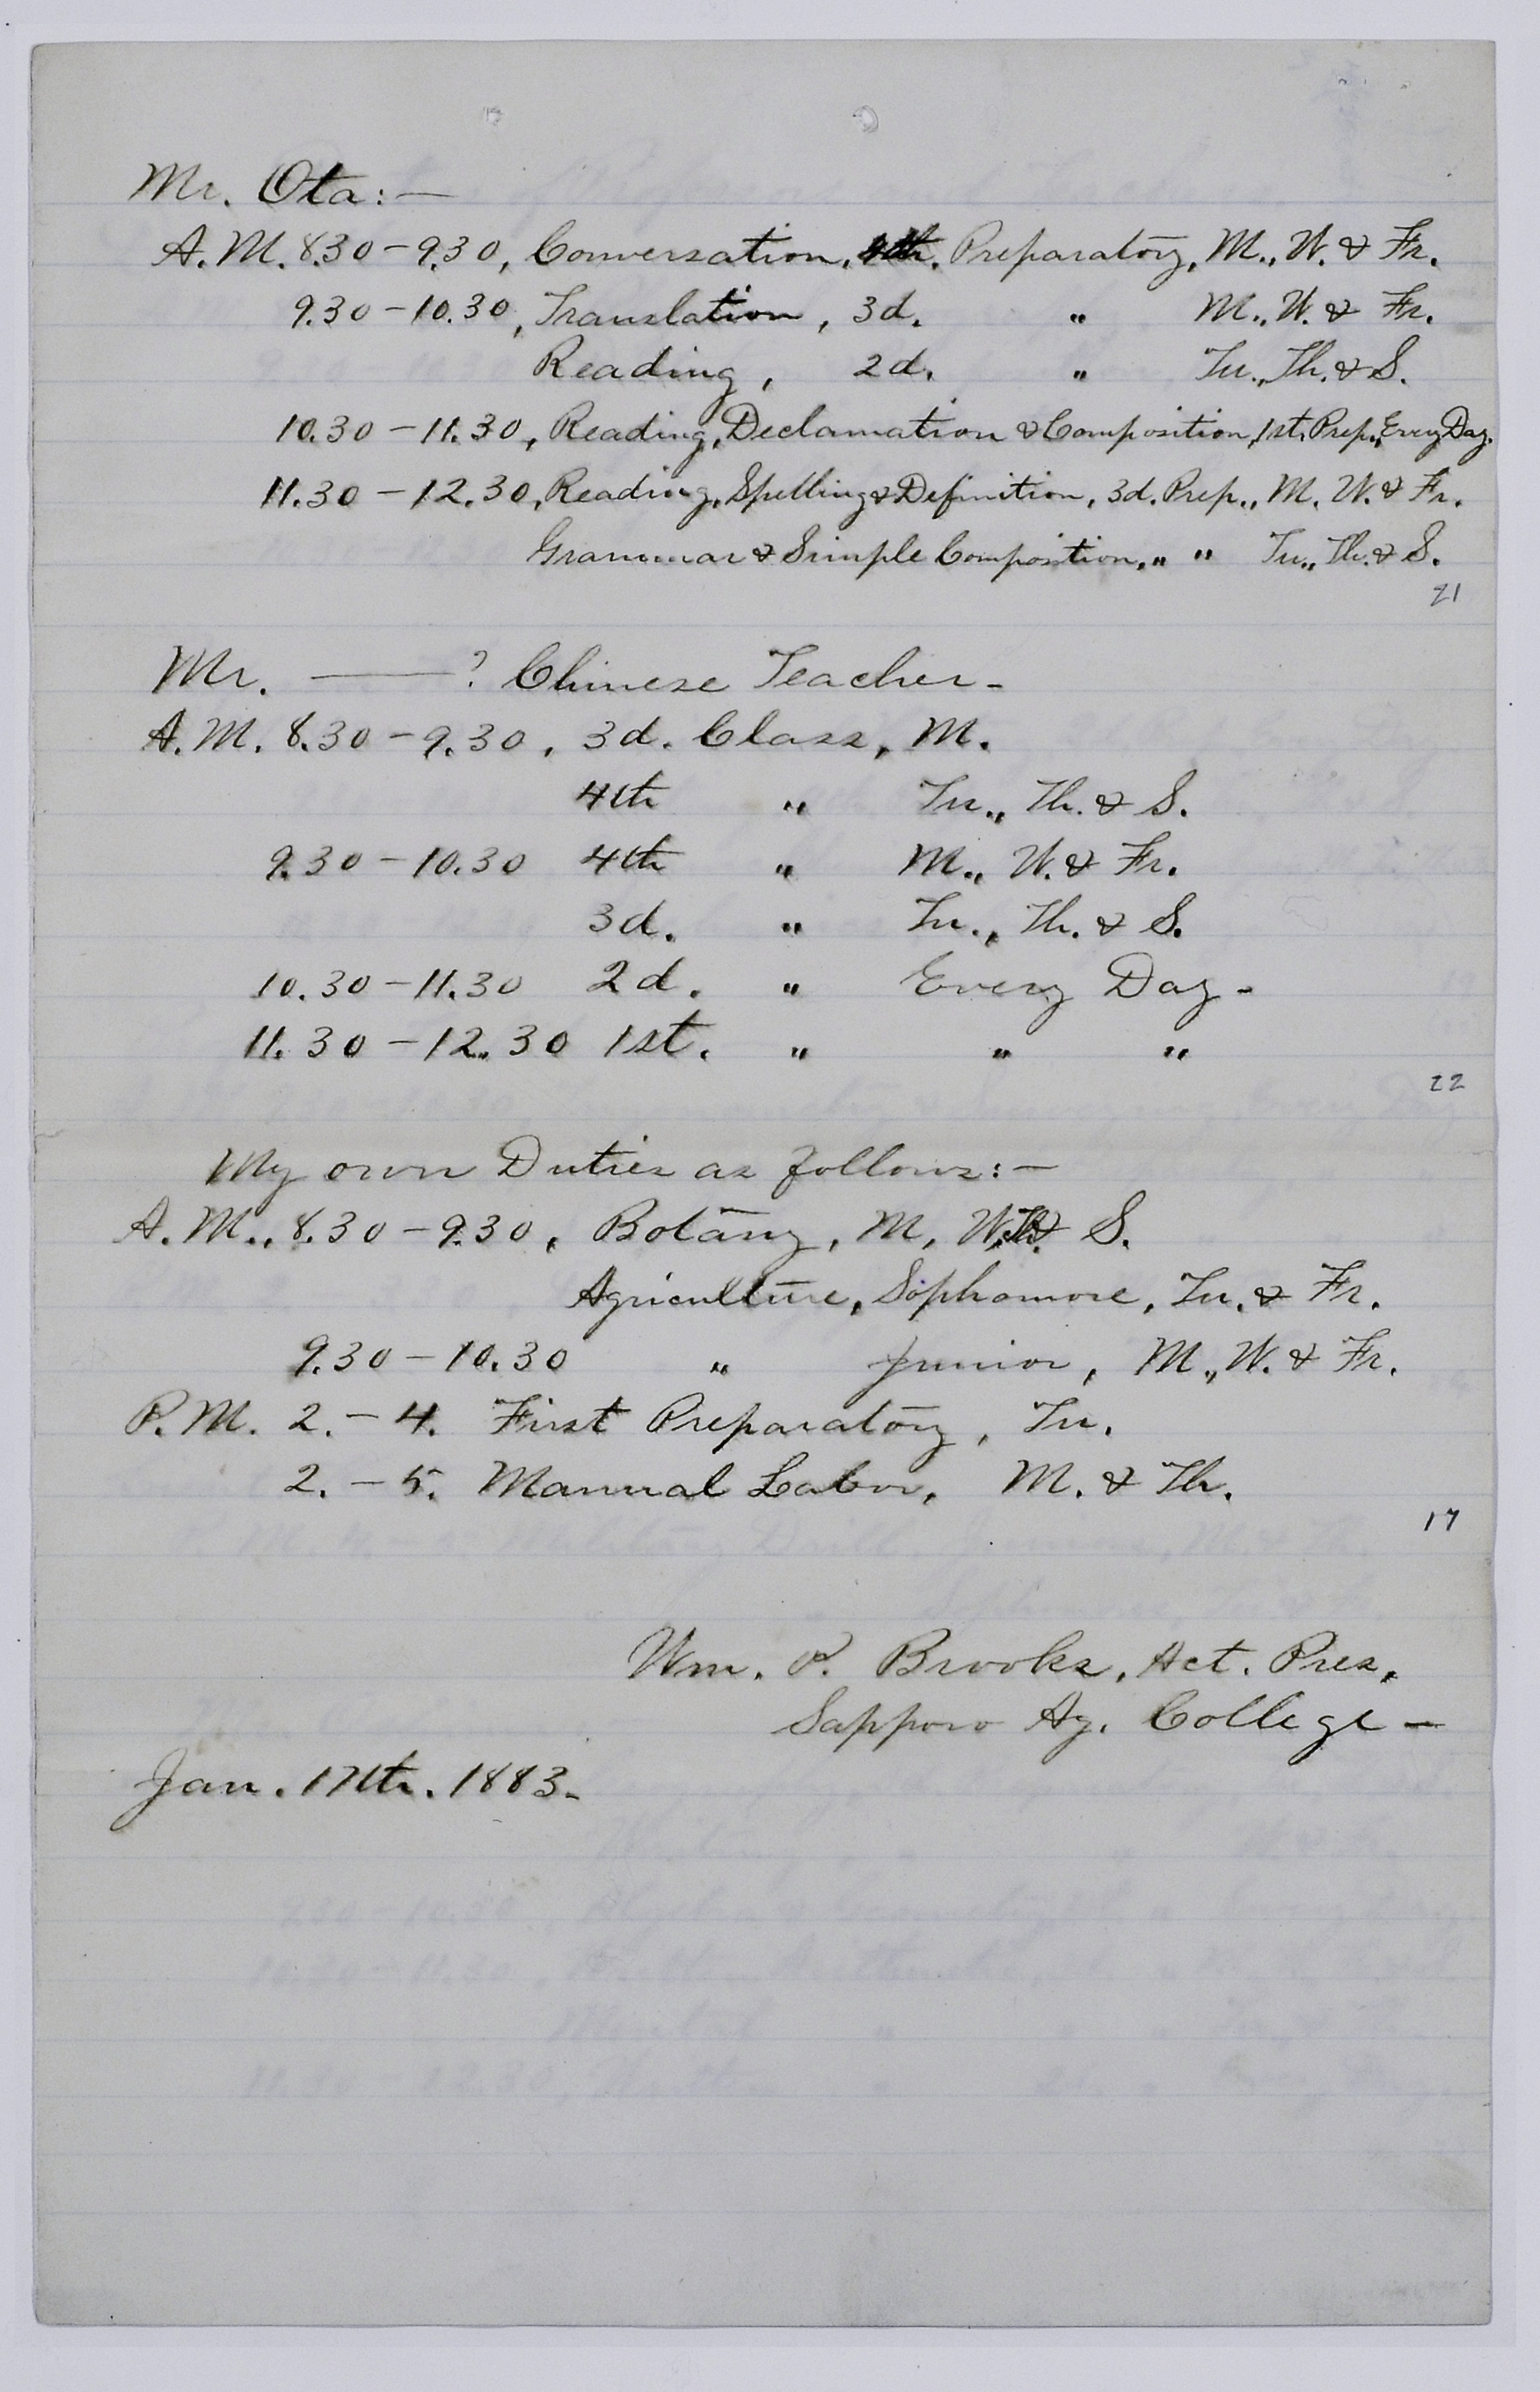 Mr. Ota:—
A.M. 8.30–9.30, Conversation, 4th. Preparatory, M., W. & Fr.
9.30–10.30, Translation, 3d. " M., W. & Fr.
Reading, 2d. " Tu., Th. & S.
10.30–11.30, Reading, Declamation & Composition, 1st. Prep., Every Day.
11.30–12.30, Reading, Spelling & Definition, 3d. Prep., M. W. & Fr.
Grammar & Simple Composition, " " Tu., Th. & S.
21
Mr. ——? Chinese Teacher-
A.M. 8.30–9.30, 3d. Class, M.
4th " Tu., Th. & S.
9.30–10.30 4th " M., W. & Fr.
3d. " Tu., Th. & S.
10.30–11.30 2d. " Every Day-
11.30–12.30 1st. " " "
22
My own Duties as follows:—
A.M., 8.30–9.30, Botany, M, W, Th. & S.
Agriculture, Sophomore, Tu. & Fr.
9.30–10.30 " Junior, M., W. & Fr.
P.M. 2.–4. First Preparatory, Tu.
2.–5. Manual Labor, M. & Th.
17
Wm. P. Brooks, Act. Pres.
Sapporo Ag. College—
Jan. 17th. 1883-